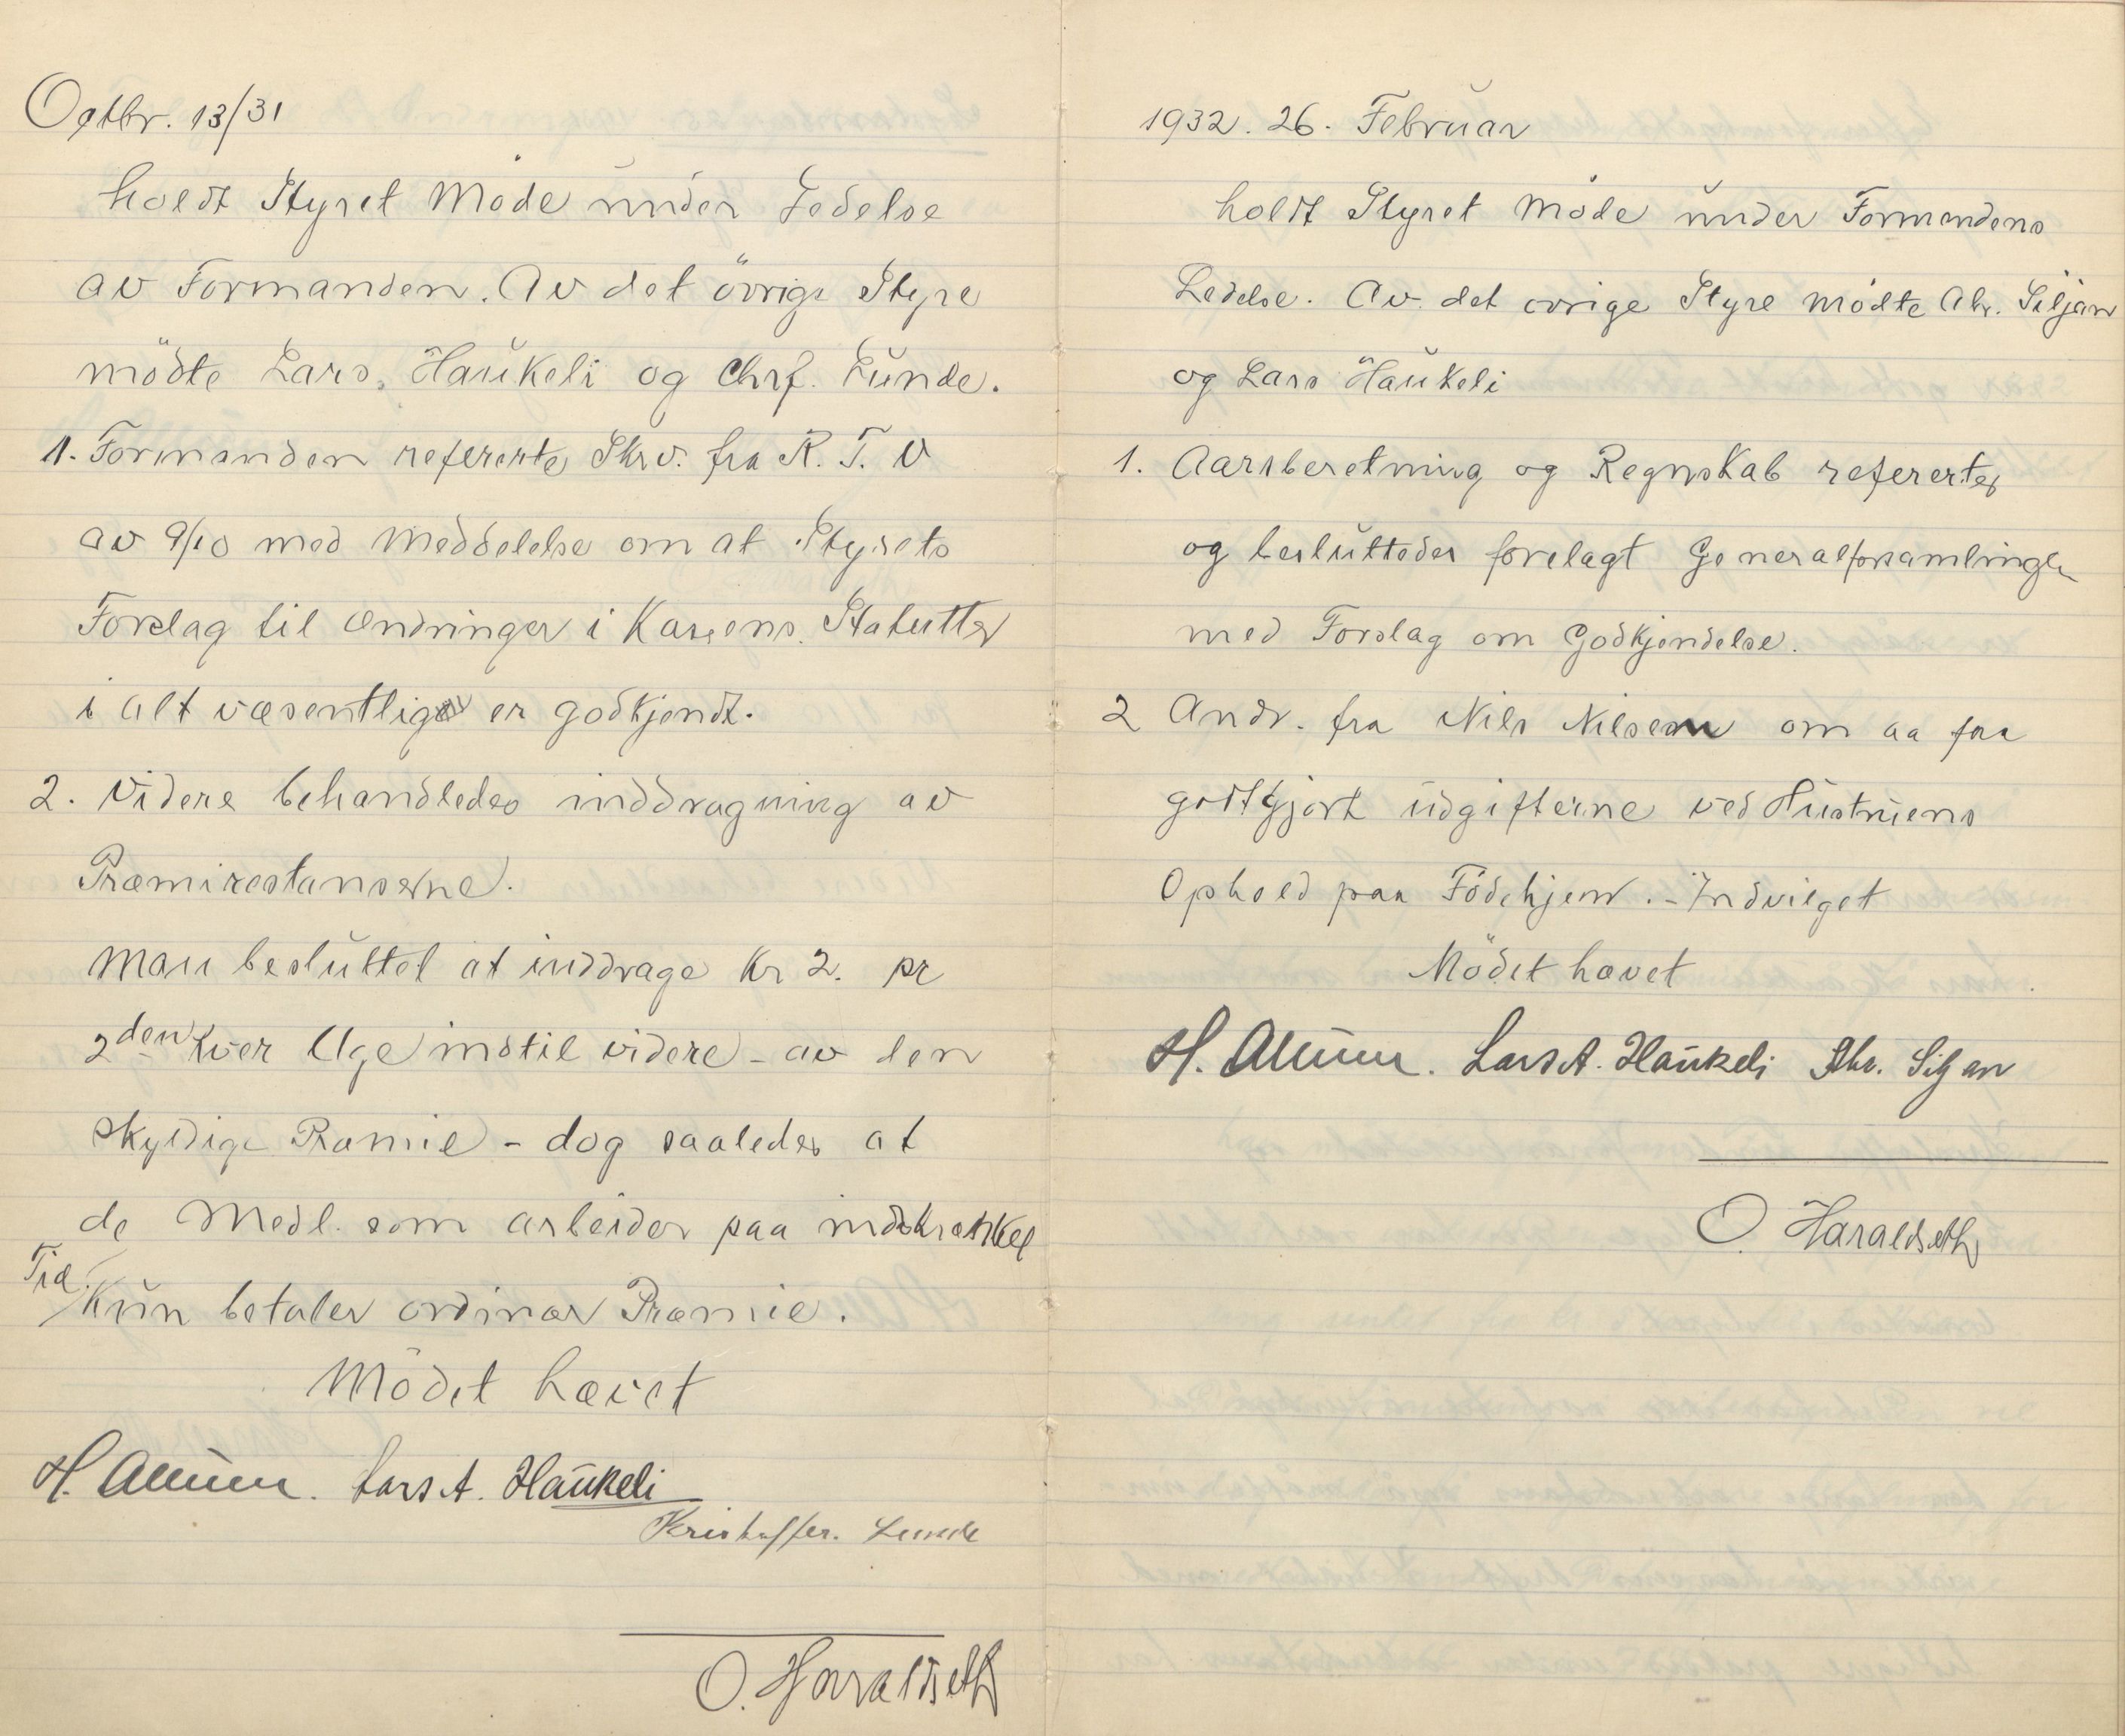 Octbr. 13/31
holdt Styret Möde under Ledelse
av Formanden. Av det övrige Styre
mödte Lars. Haukeli og Chrf. Lunde.
1. Formanden refererte Skrv. fra R. T. V
av 9/10 med Meddelelse om at Styrets
Forslag til Ændringer i Kassens Statutter
i alt væsentlig er godkjendt.
2. Videre behandledes inddragning av
Præmirestanserne.
Man besluttet at inddrage Kr 2. pr
2den hver Uge indtil videre - av den
skyldige Præmie - dog saaledes at
de Medl. som arbeider paa indskrænket
Tid
Kun betaler ordinær Præmie.
Mödet hævet
H. Allum. Lars A. Haukeli
Kristoffer. Lunde
O. Haraldseth
1932. 26. Februar
holdt Styret Möde under Formandens
Ledelse. Av det övrige Styre mödte Abr. Siljan
og Lars Haukeli
1. Aarsberetning og Regnskab referertes
og besluttedes forelagt Generalforsamlingen
med Forslag om Godkjendelse.
2 Andr. fra Nils Nilsen om aa faa
godtgjort udgifterne ved Hustruens
Ophold paa Födehjem. - Indvilget
Mödet hævet
H. Allum. Lars A. Haukeli Abr. Siljan
O. Haraldseth